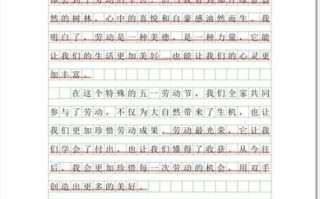 然的树林，心中的喜悦和自豪感油然而生。我
明白了，劳动是一种美德，是一种力量，它能
让我们的生活更加美好，也能让我们的心灵更
加丰富。
在这个特殊的五一劳动节，我们全家共同
参与了劳动，不仅为大自然带来了生机，也让
我们更加珍惜劳动成果。劳动最光荣，它让我
们学会了付出，也让我们懂得了收获。从今往
后，我会更加珍惜每一次劳动的机会，用双手
创造出更多的美好。